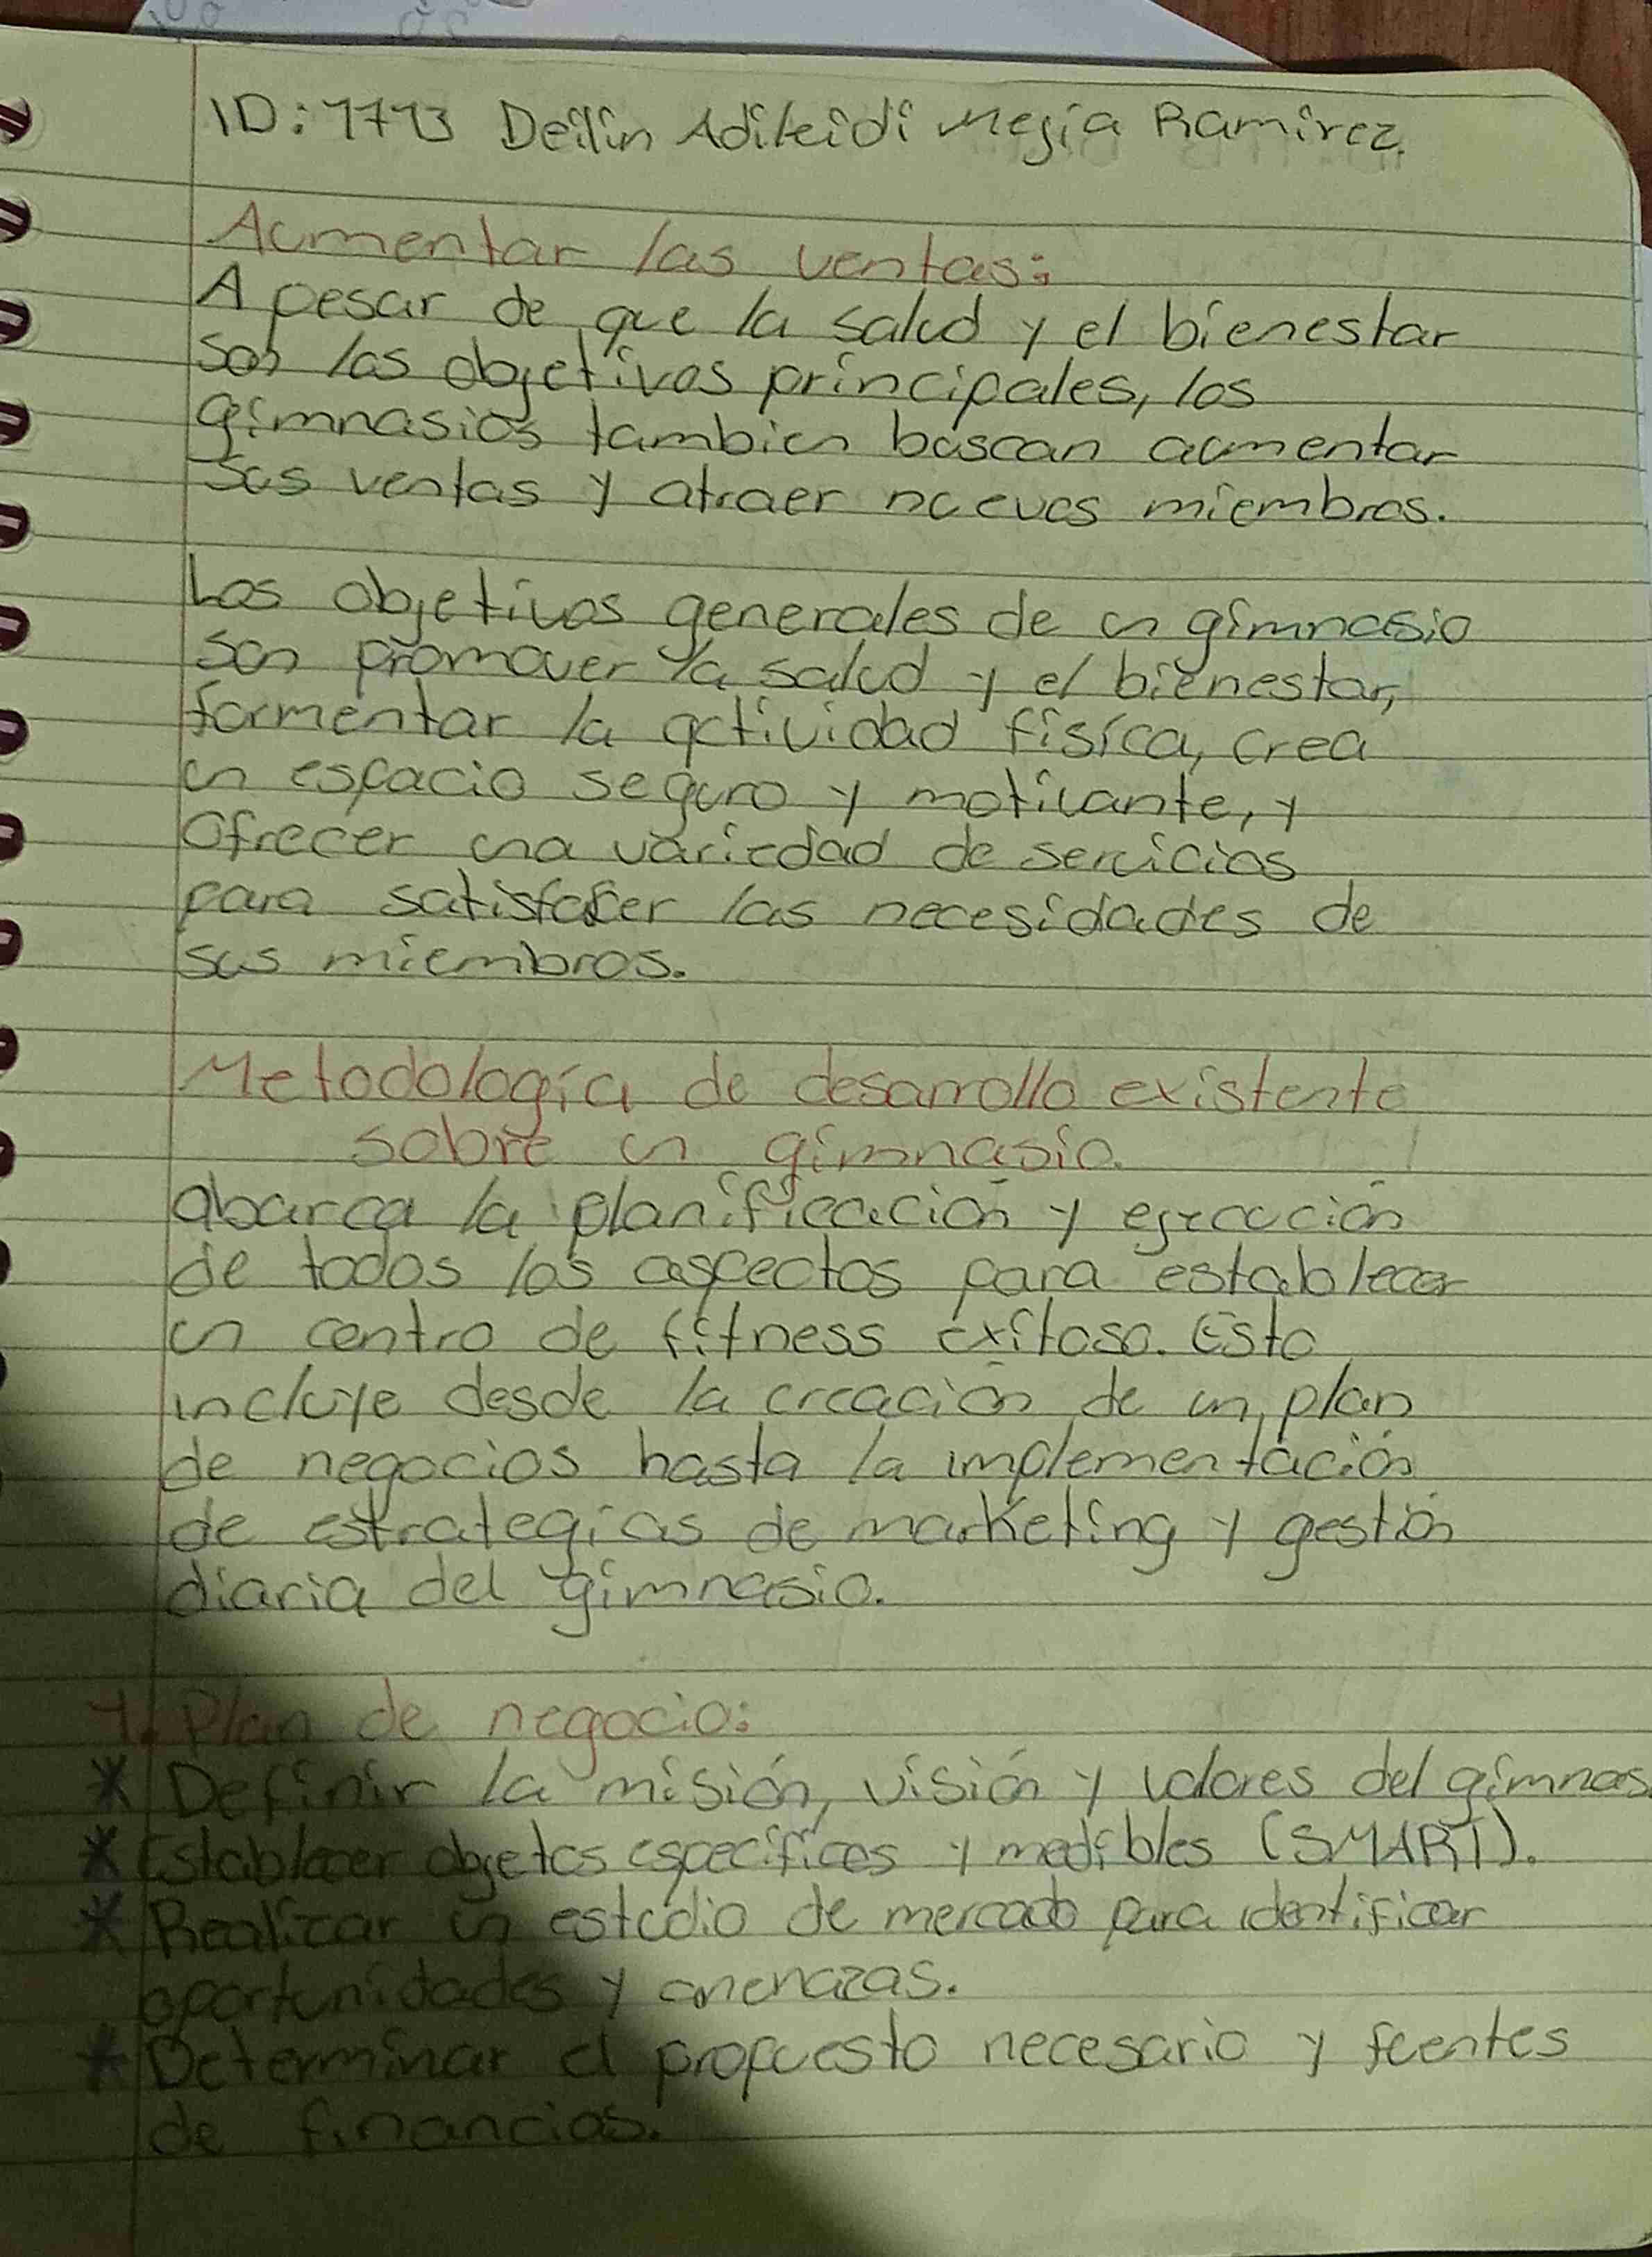 ID: 1713 Deilin Adileidi Mejía Ramirez.
Aumentar las ventas:
A pesar de que la salud y el bienestar
son los objetivos principales, los
gimnasios tambien buscan aumentar
sus ventas y atraer nuevos miembros.
Los objetivos generales de un gimnasio
son promover la salud y el bienestar,
formentar la actividad física, crea
un espacio seguro y motivante, y
Ofrecer una variedad de servicios
para satisfacer las necesidades de
sus miembros.
Metodología de desarrollo existente
sobre un gimnasio.
abarca la planificación y ejecución
de todos los aspectos para establecer
un centro de fitness exitoso. Esto
incluye desde la creación de un plan
de negocios hasta la implementación
de estrategias de marketing y gestión
diaria del gimnasio.
1. Plan de negocio:
* Definir la misión, visión y valores del gimnas
* Establecer objetos especificos y medibles (SMART).
* Realizar un estudio de mercado para identificar
oportunidades y amenazas.
* Determinar el propuesto necesario y fuentes
de financias.